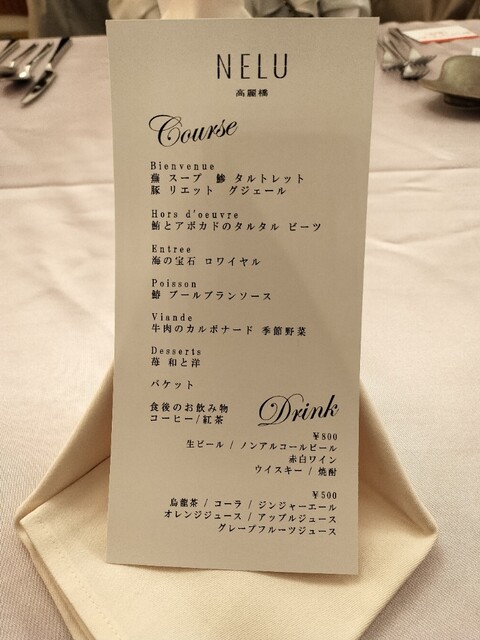 NELU
高麗橋
Course
Bienvenue
蕪 スープ 鯵 タルトレット
豚 リエット グジェール
Hors d'oeuvre
鮪とアボカドのタルタル ビーツ
Entree
海の宝石 ロワイヤル
Poisson
鰆 ブールブランソース
Viande
牛肉のカルボナード 季節野菜
Desserts
苺 和と洋
バケット
食後のお飲み物
コーヒー/紅茶
Drink
¥800
生ビール / ノンアルコールビール
赤白ワイン
ウイスキー / 焼酎
¥500
烏龍茶 / コーラ / ジンジャーエール
オレンジジュース / アップルジュース
グレープフルーツジュース